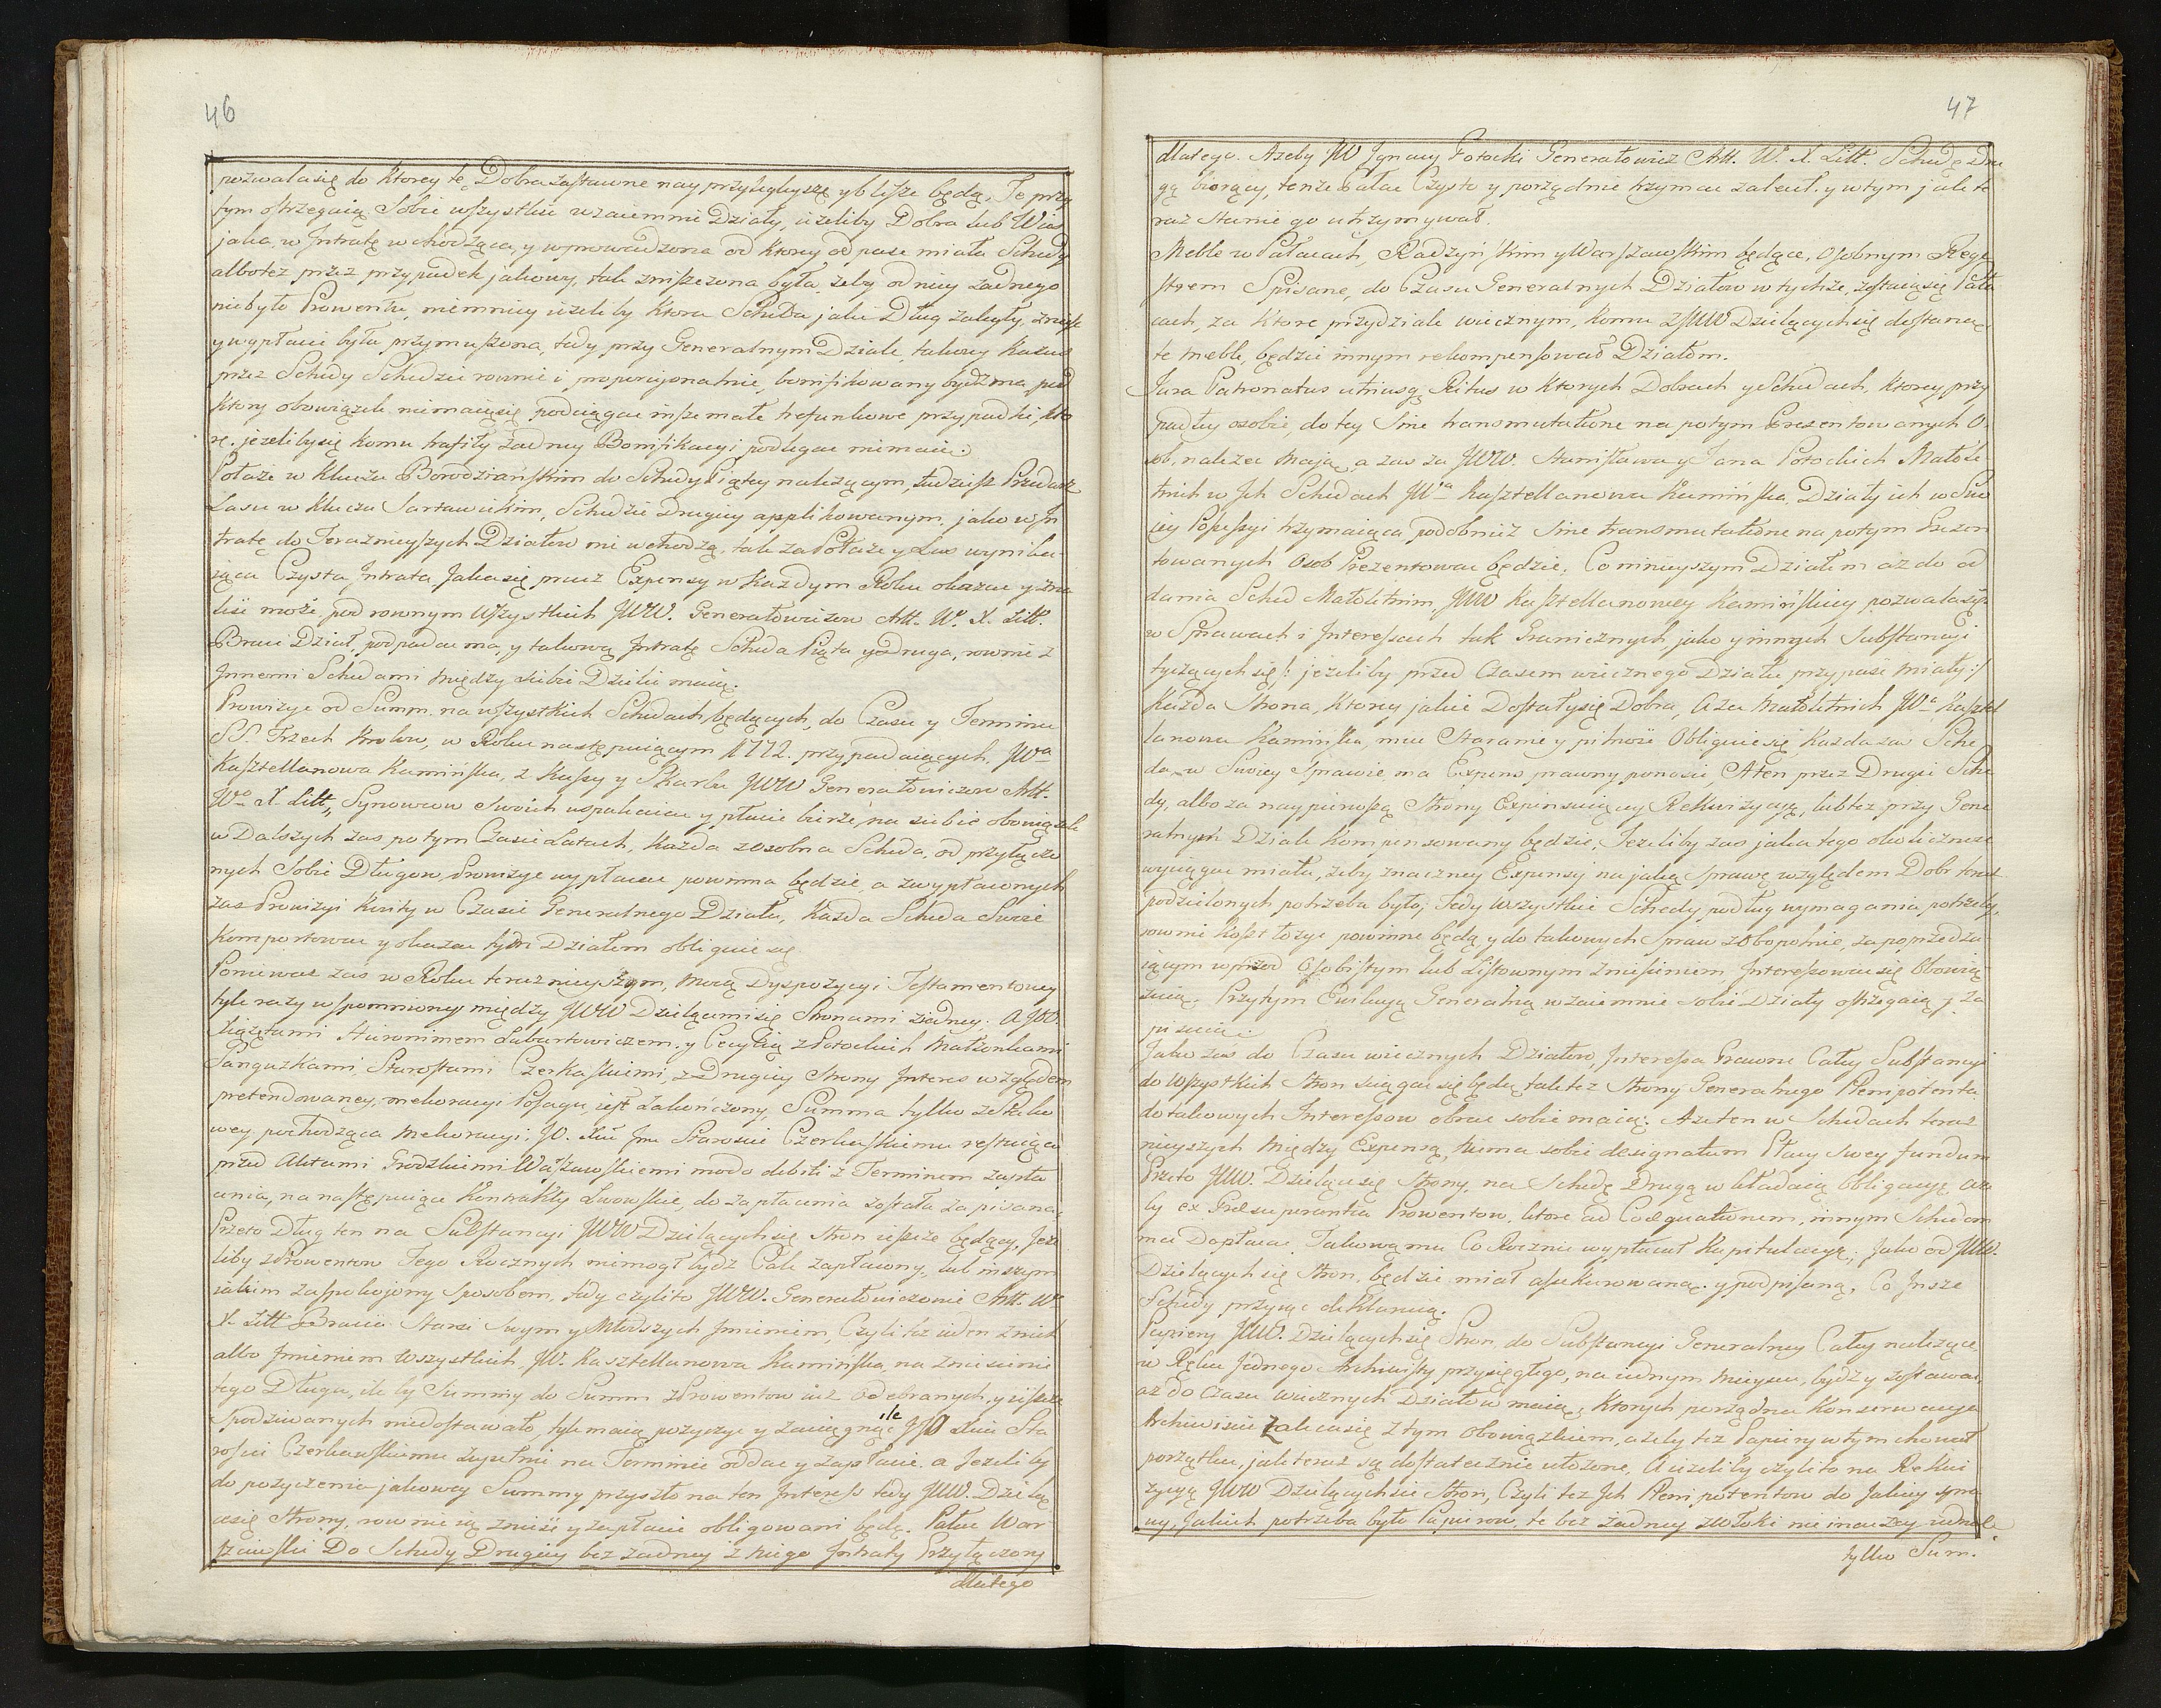 46
pozwala się do ktorey te Dobra zastawne nay przyległeysze y bliższe będą. Te przy
tym ostrzegaią Sobie wszystkie wzaiemnie Działy, iżeliby Dobra lub Wieś
jaka, w Jntratę wchodząca, y wprowadzona od ktorey odpaść miała Schedy
albotez przez przypadek jakowy, tak zniszczona była, żeby od niey żadnego
niebyło Prowentu, niemniey iżeliby ktora Scheda jakie Długi zaległy, znieść
y wypłacić była przymuszona, tedy przy Generalnym Dziale, takowy każus
przez Schedy Schedzie rownie i proporcyonalnie, bonifikowany bydź ma, pod
ktory obowiązek niemaią się podciągać insze małe trefunkowe przypadki, kto
re. jeżeliby się komu trafiły żadney Bonifikacyi podlegać niemaią.
Potaże w Kluczu Borodziańskim do Schedy Piątey należącym, tudziesz Przedarz
Lasu w kluczu Sartawickim, Schedzie Drugiey applikowanym, jako w Jn
tratę do Terażnieyszych Działow nie wchodzą, tak za Potaże y Las wynika-
iąca Czysta Jntrata Jaka się precz Expensy w każdym Roku okazać y zna
leść może, pod rownym Wszystkich JWW. Generałowiczow Att. W. X. Litt.
Braci Dział, podpadać ma, y takową Jntratę Scheda Piąta y Druga, rownie z
Jnnemi Schedami między siebie Dzielić maią.
Prowizye od Summ na wszystkich Schedach będących, do Czasu y Terminu
SS. Trzech Krolow, w Roku następuiącym 1772. przypadaiących, JWa
Kasztellanowa Kamińska, z Kassy y Skarbu JWW Generałowiczow Att.
Wo X. Litt, Synowcow Swoich uspakaiać y płacić bierze na siebie obowiązek
w Dalszych zas potym Czasie Latach, każda zosobna Scheda, od przyłączo
nych Sobie Długow Prowizye wypłacać powinna będzie, a zwypłaconych
zas Prowizyi kwity w Czasie Generalnego Działu, każda Scheda Swoie
komportować y okazać tym Działem obliguie się.
Ponieważ zas w Roku teraznieyszym, mocą Dyspozycyi Testamentowey
tyle razy wspomnioney między JWW Dzielącemi się Stronami ziedney; a JOO.
Xiążętami Hieronimem Lubartowiczem, y Cecylią z Potockich Małżonkami
Sanguszkami Starostami Czerkaskiemi, z Drugiey Strony Jnteres względem
pretendowaney, melioracyi Posagu, iest zakończony, Summa tylko zetako
wey pochodząca Melioracyi, JO. Xciu Jmci Staroście Czerkaskiemu respuiąca
przed Aktami Grodzkiemi Warszawskiemi modo debiti z Terminem zapła
cenia, na następuiące Kontrakty Lwowskie, do zapłacenia została zapisana,
Przeto Dług ten na Substancyi JWW Dzielących się Stron ieszcze będący, Jeże
liby z Prowentow Tego Rocznych niemogł bydź Cale zapłacony, lub inszym
iakim zaspokojony sposobem, tedy czylito JWW. Generałowiczowie Att. Wo
X. Litt Bracia Starsi Swym y Młodszych Jmieniem, Czyli też ieden z nich
albo Jmieniem Wszystkich, JW. Kasztellanowa Kamińska, na zniesienie
tego Długu, ile by Summy do Summ z Prowentow iuż odebranych, y ieszcze
spodziwanych niedostawało, tyle maią pożyczyć y zaciągnąć ile JO Xciu Sta
roście Czerkaskiemu zupełnie na Terminie oddać y zapłacić. a Jeżeliby
do pożyczenia jakowey Summy przyszło na ten Jnteress tedy JWW. Dzielą
ce się Strony, rownie ią znieść y zapłacić obligowani będą. Pałac War
szawski Do Schedy Drugiey bez żadney z niego Jntraty Przyłączony
dlatego
47
dlatego. Ażeby JW Jgnacy Potocki Generałowicz Att. W. X. Litt. Schedę Dru
gą biorący, tenże Pałac Czysto y porządnie trzymać zalecił, y w tym jak te
raz stanie go utrzymywał.
Meble w Pałacach, Radzyńskim y Warszawskim będące, Osobnym Rege
strem Spisane, do Czasu Generalnych Działow w tychże, zostaią się Pała
cach, za ktore przydziale wiecznym, komu z JWW Dzielących się dostaną,
te meble, będzie innym rekompensował Działom.
Jura Patronatus utriusq Ritus w ktorych Dobrach y Schedach, ktorey przy
padły osobie, do tey Sine transmutatione na potym Prezentowanych O-
sob, należeć maią, a zas za JWW. Stanisława y Jana Potockich Małole-
tnich w Jch Schedach JWa Kasztellanowa Kamińska, Działy ich w Swo
iey Possessyi trzymaiąca podobnież Sine transmutatione na potym Prezen
towanych Osob Prezentować będzie, Co ninieyszym Działem aż do od
dania Sched Małoletnim, JWW Kasztellanowey Kamińskiey pozwala się.
w Sprawach i Jnteressach tak Granicznych, jako y innych Substancyi
tyczących się /: jeżeliby przed Czasem wiecznego Działu przypaść miały :/
Każda Strona, ktorey jakie Dostały się Dobra, a za Małoletnich JWa Kasztel
lanowa Kamińska, miec Staranie y pilność Obliguie się, każda zas Sche
da w Swoiey Sprawie, ma Expens prawny ponosić, A ten przez Drugie Sche
dy, albo za naypierwszą Strony Expensuiącey Rekwizycyą, lub też przy Gene
ralnym Dziale kompensowany będzie, Jeżeliby zas jaka tego okoliczność
wyciągać miała, żeby znaczney Expensy na jaką Sprawę względem Dobr teraz
podzielonych potrzeba było, Tedy wszystkie Schedy podług wymagania potrzeby,
rownie koszt łożyć powinne będą, y do takowych Spraw zobopolnie, za poprzedza-
iącym wprzod Osobistym lub Listownym zniesieniem, Jnteressować się Obowią-
zuią. Przytym Ewikcyą Generalną wzaiemnie sobie Działy ostrzegaią y za
pisuią.
Jako zaś do Czasu wiecznych Działow, Jnteressa Prawne Całey Substancyi
do Wszystkich Stron sciągać się będą, tak też Strony Generalnego Plenipotenta
do takowych Jnteressow obrać sobie maią. A że ten w Schedach teraz-
nieyszych między Expensą, niema sobie designatum Płacy Swey fundum
Przeto JWW. Dzielące się Strony, na Schedę Drugą wkładaią Obligacyę, aże
by ex Praesuperantia Prowentow, ktore ad Coaequationem, innym Schedom
ma Dopłacać, Takowemu Co Rocznie wypłacał kapitulacyę, Jako od JWW.
Dzielących się Stron, będzie miał assekurowaną, y podpisaną, Co Jnsze
Schedy przyiąć deklaruią.
Papiery JWW. Dzielących się Stron, do Substancyi Generalney Całey należące,
w Ręku Jednego Archiwisty przysięgłego, na iednym mieyscu, bydź y zostawać,
aż do Czasu wiecznych Działow maią, ktorych porządna konserwacya
Archiwiście zaleca się z tym obowiązkiem, ażeby też Papiery w tym chował
porządku, jak teraz są dostatecznie ułożone, A ieżeliby czylito na Rekwi
zycyą JWW Dzielących się Stron, Czyli też Jch Plenipotentow do Jakiey spra
wy, Jakich potrzeba było Papierow, te bez żadney zwłoki nie inaczey iednak
tylko Sum.